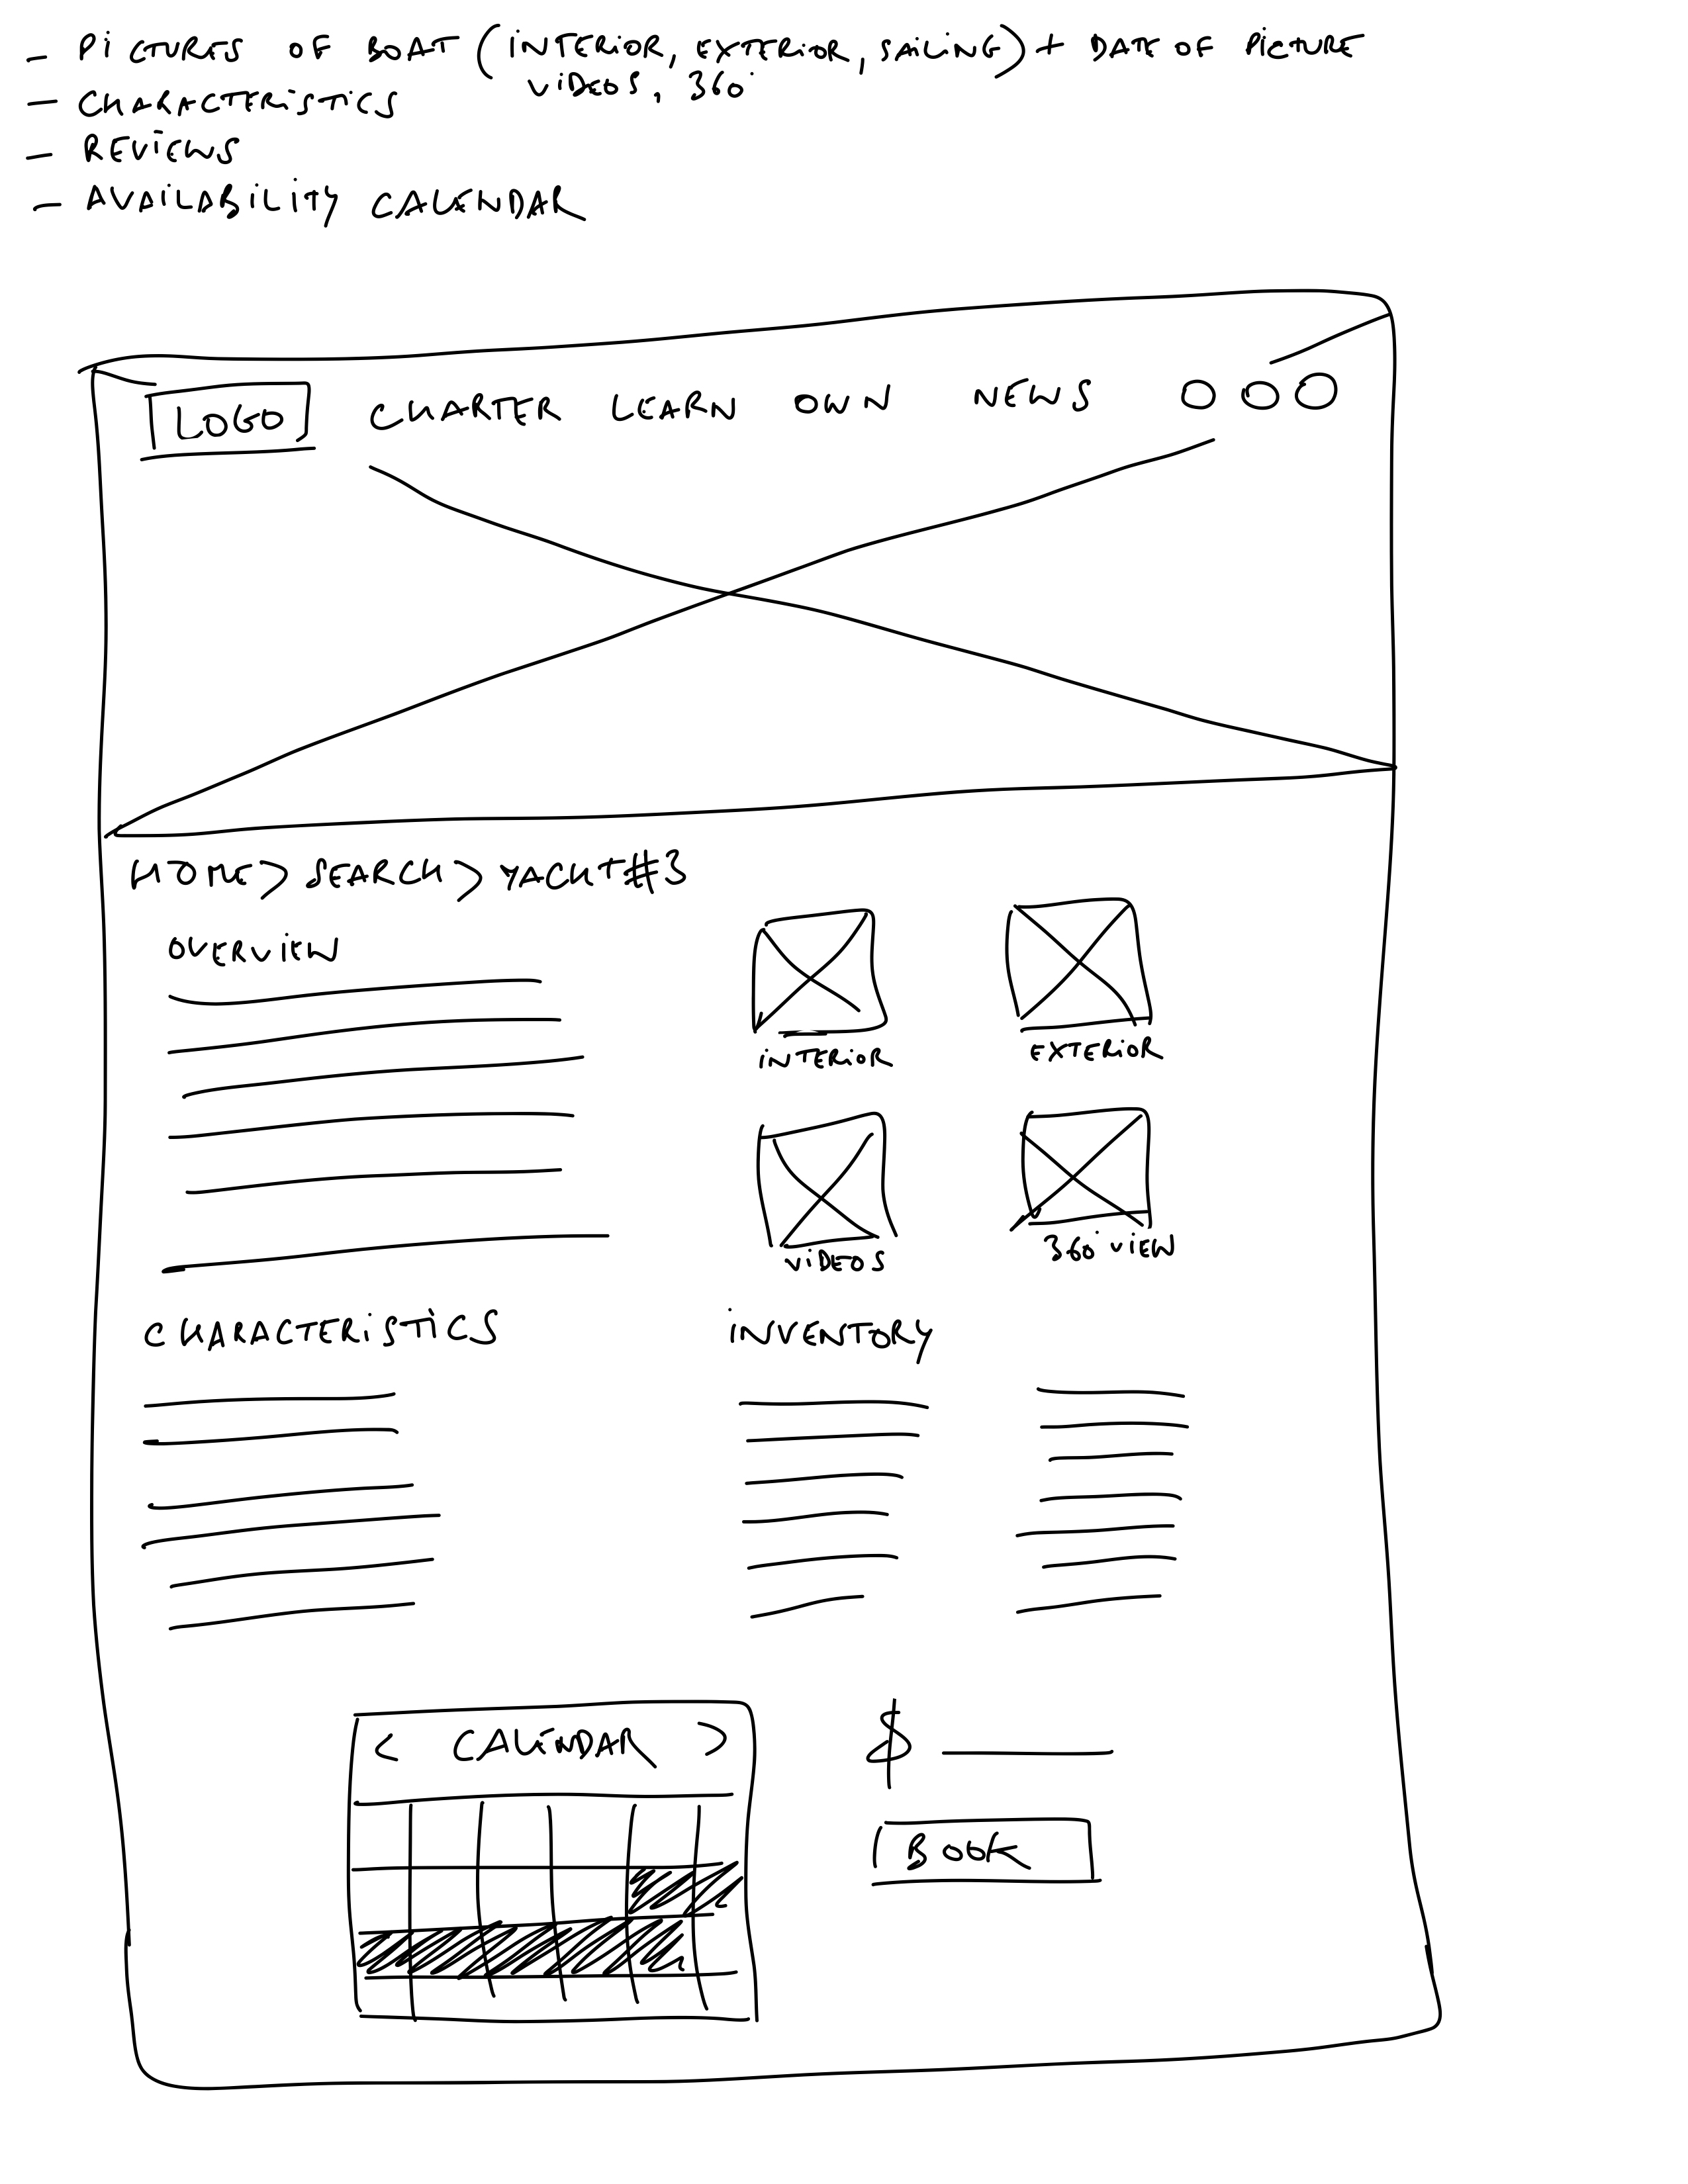 - PICTURES OF BOAT (INTERIOR, EXTERIOR, SAILING) + DATE OF PICTURE
VIDEOS, 360°
- CHARACTERISTICS
- REVIEWS
- AVAILABILITY CALENDAR
LOGO CHARTER LEARN OWN NEWS
HOME > SEARCH > YACHT #3
OVERVIEW
INTERIOR EXTERIOR
VIDEOS 360° VIEW
CHARACTERISTICS INVENTORY
< CALENDAR > $
BOOK